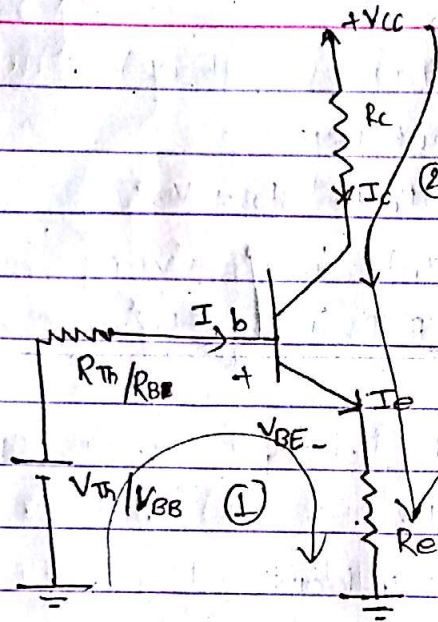 +Vcc
Rc
Ic
②
I b
RTh/RB
+
Ie
VBE -
VTh/VBB
①
Re